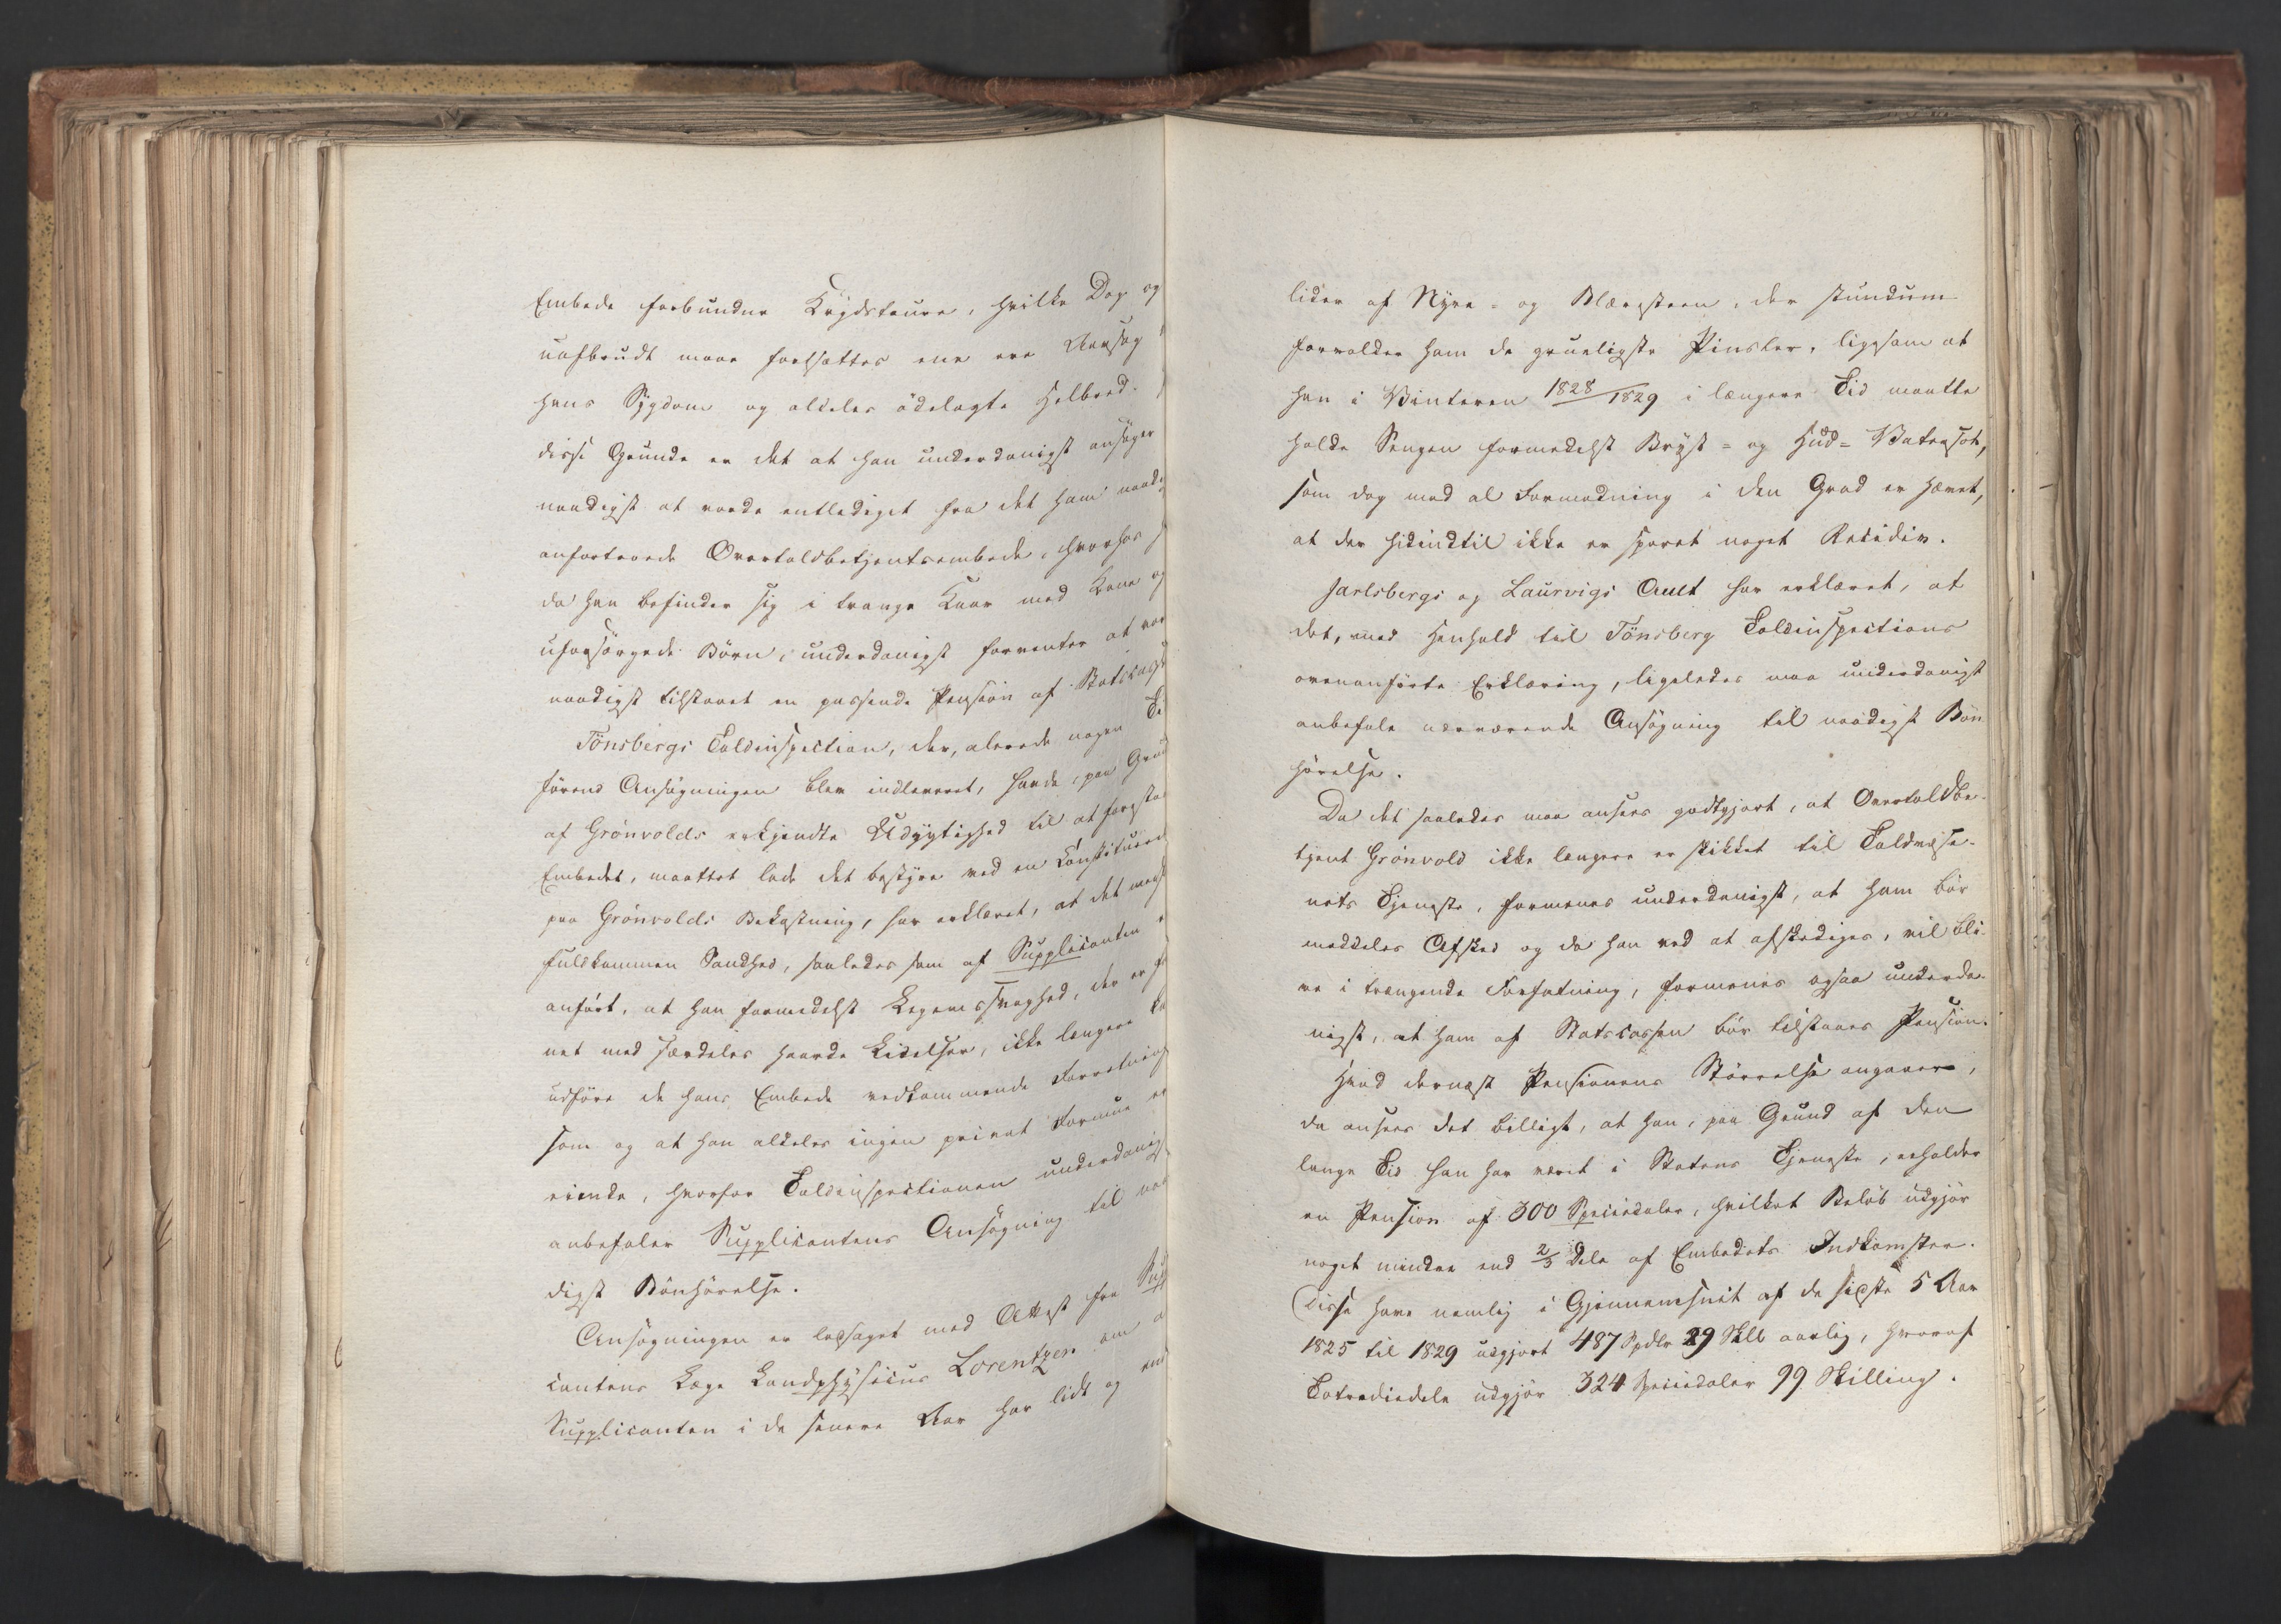 Embede forbundne Krydstoure, hvilke Dog og
uafbrudt maae fortsættes ene ere Aarsag
hans Sygdom og aldeles ödelagte Helbred.
disse Grunde er det at han underdanigst ansöger
naadigst at vorde entlediget fra det ham naadi
anfortroede Overtoldbetjentsembede, hvorhos
da han befinder sig i trange Kaar med Kone og
uforsörgede Börn, underdanigst forventer at vor
naadigst tilstaaet en passende Pension af Statscass
Tönsbergs Toldinspection, der, allerede nogen Ti
förend Ansögningen blev indleveret, havde, paa Grund
af Grönvolds erkjendte Udygtighed til at forestaa
Embedet, maattet lade det bestyre ved en Constitueret
paa Grönvolds Bekostning, har erklæret, at det med
fuldkommen Sandhed, saaledes som af Supplicanten
anfört, at han formedelst Legemssvaghed, der er
net med særdeles haarde Lidelser, ikke længere ka
udföre de hans Embede vedkommende Forretning
som og at han aldeles ingen privat Formue er
eiende, hvorfor Toldinspectionen underdanig
anbefaler Supplicantens Ansögning til naa
digst Bönhörelse.
Ansögningen er ledsaget med Attest fra Sup
cantens Læge Landphysicus Lorentzen om a
Supplicanten i de senere Aar har lidt og end
lider af Nyre- og Blæresteen, der stundum
forvolder ham de grueligste Pinsler, ligesom at
han i Vinteren 1828/1829 i længere Tid maatte
holde Sengen formedelst Bryst- og Hud-Vatersot,
som dog med al Formodning i den Grad er hævet,
at der hidindtil ikke er sporet noget Recidiv.
Jarlsbergs og Laurvigs Amt har erklæret, at
det, med Henhold til Tönsberg Toldinspections
ovenanförte Erklæring, ligeledes maa underdanigst
anbefale nærværende Ansögning til naadigst Bön
hörelse.
Da det saaledes maa ansees godtgjort, at Overtoldbe-
tjent Grönvold ikke længere er skikket til Toldvæse-
nets Tjeneste, formenes underdanigst, at ham bör
meddeles Afsked og da han ved at afskediges, vil bli-
ve i trængende Forfatning, formenes ogsaa underda-
nigst, at ham af Statscassen bör tilstaaes Pension.
Hvad dernæst Pensionens Störrelse angaaer,
da ansees det billigt, at han, paa Grund af den
lange Tid han har været i Statens Tjeneste, erholder
en Pension af 300 Speciedaler, hvilket Belöb udgjör
noget mindre end 2/3 Dele af Embedets Indkomster.
Disse have nemlig i Gjennemsnit af de sidste 5 Aar
1825 til 1829 udgjort 487 Spdlr 29 Skll aarlig, hvoraf
Totrediedele udgjör 324 Speciedaler 99 Skilling.